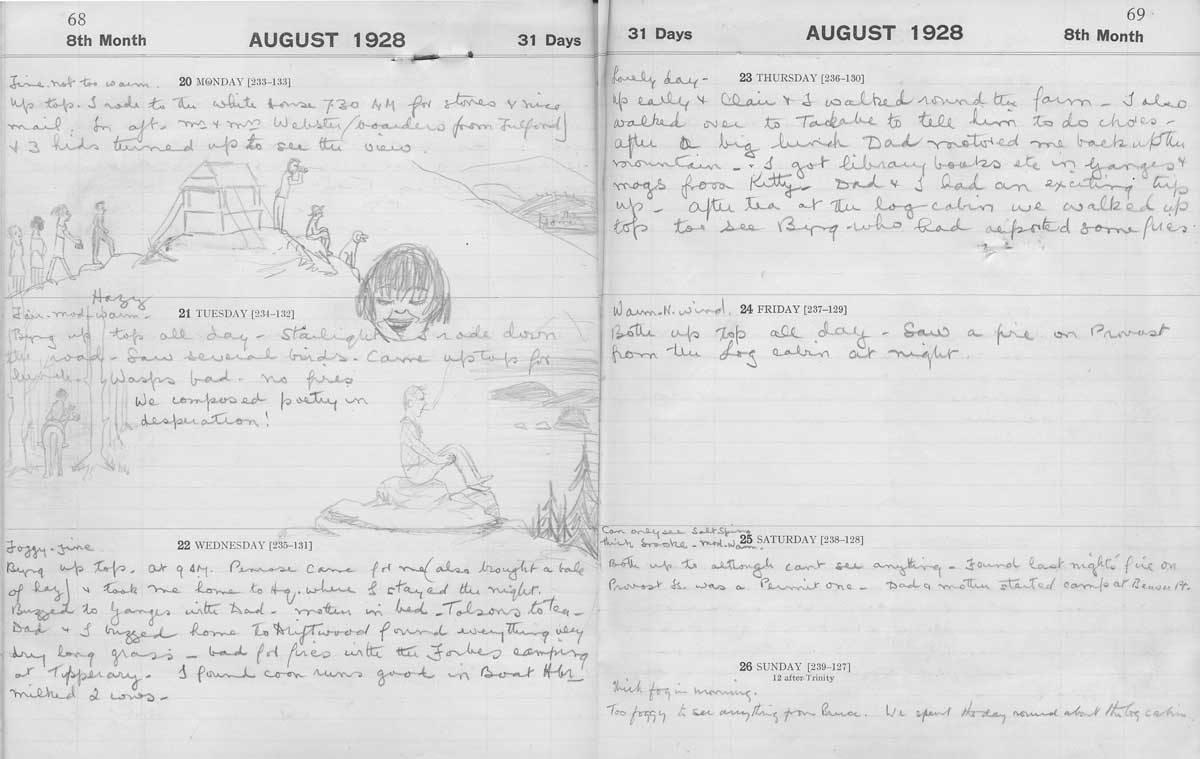 68
8th Month
AUGUST 1928
31 Days
Fine. not too warm.
20 MONDAY [233–133]
up top. I rode to the white house 730 AM for stores & nice
mail. In aft. Mr & Mrs Webster (boarders from Fulford)
& 3 kids turned up to see the view.
Home
Hazy
Fine - mod - warm -
21 TUESDAY [234–132]
Byng up top all day - Starlight & I rode down
the road - Saw several birds. Came up top for
lunch. Wasps bad. no fires
We composed poetry in
desperation!
Foggy - fine
22 WEDNESDAY [235–131]
Byng up top. at 9 AM. Penrose came for me (also brought a bale
of hay) & took me home to Hq. where I stayed the night.
Buzzed to Ganges with Dad - mother in bed - Tolsons to tea -
Dad & I buzzed home to found everything very
dry long grass - bad for fires with the Forbes camping
at Tipperary. I found coon runs good in Boat Hbr
milked 2 cows -
69
31 Days
AUGUST 1928
8th Month
Lovely day -
23 THURSDAY [236–130]
up early & Clair & I walked round the farm - I also
walked over to to tell him to do chores -
after a big lunch Dad motored me back up the
mountain - I got library books etc in Ganges &
mags from Kitty - Dad & I had an exciting trip
up - after tea at the log cabin we walked up
top to see Byng - who had reported some fires.
Warm. N. wind.
24 FRIDAY [237–129]
Both up top all day - Saw a fire on Provost
from the Log cabin at night.
Can only see Salt Spring
thick smoke - mod. warm.
25 SATURDAY [238–128]
Both up to although cant see anything - Found last nights fire on
Provost Is was a Permit one - Dad & mother started camp at Beaver Pt.
26 SUNDAY [239–127]
12 after Trinity
thick fog in morning.
Too foggy to see anything from Bruce. We spent the day round about the log cabin